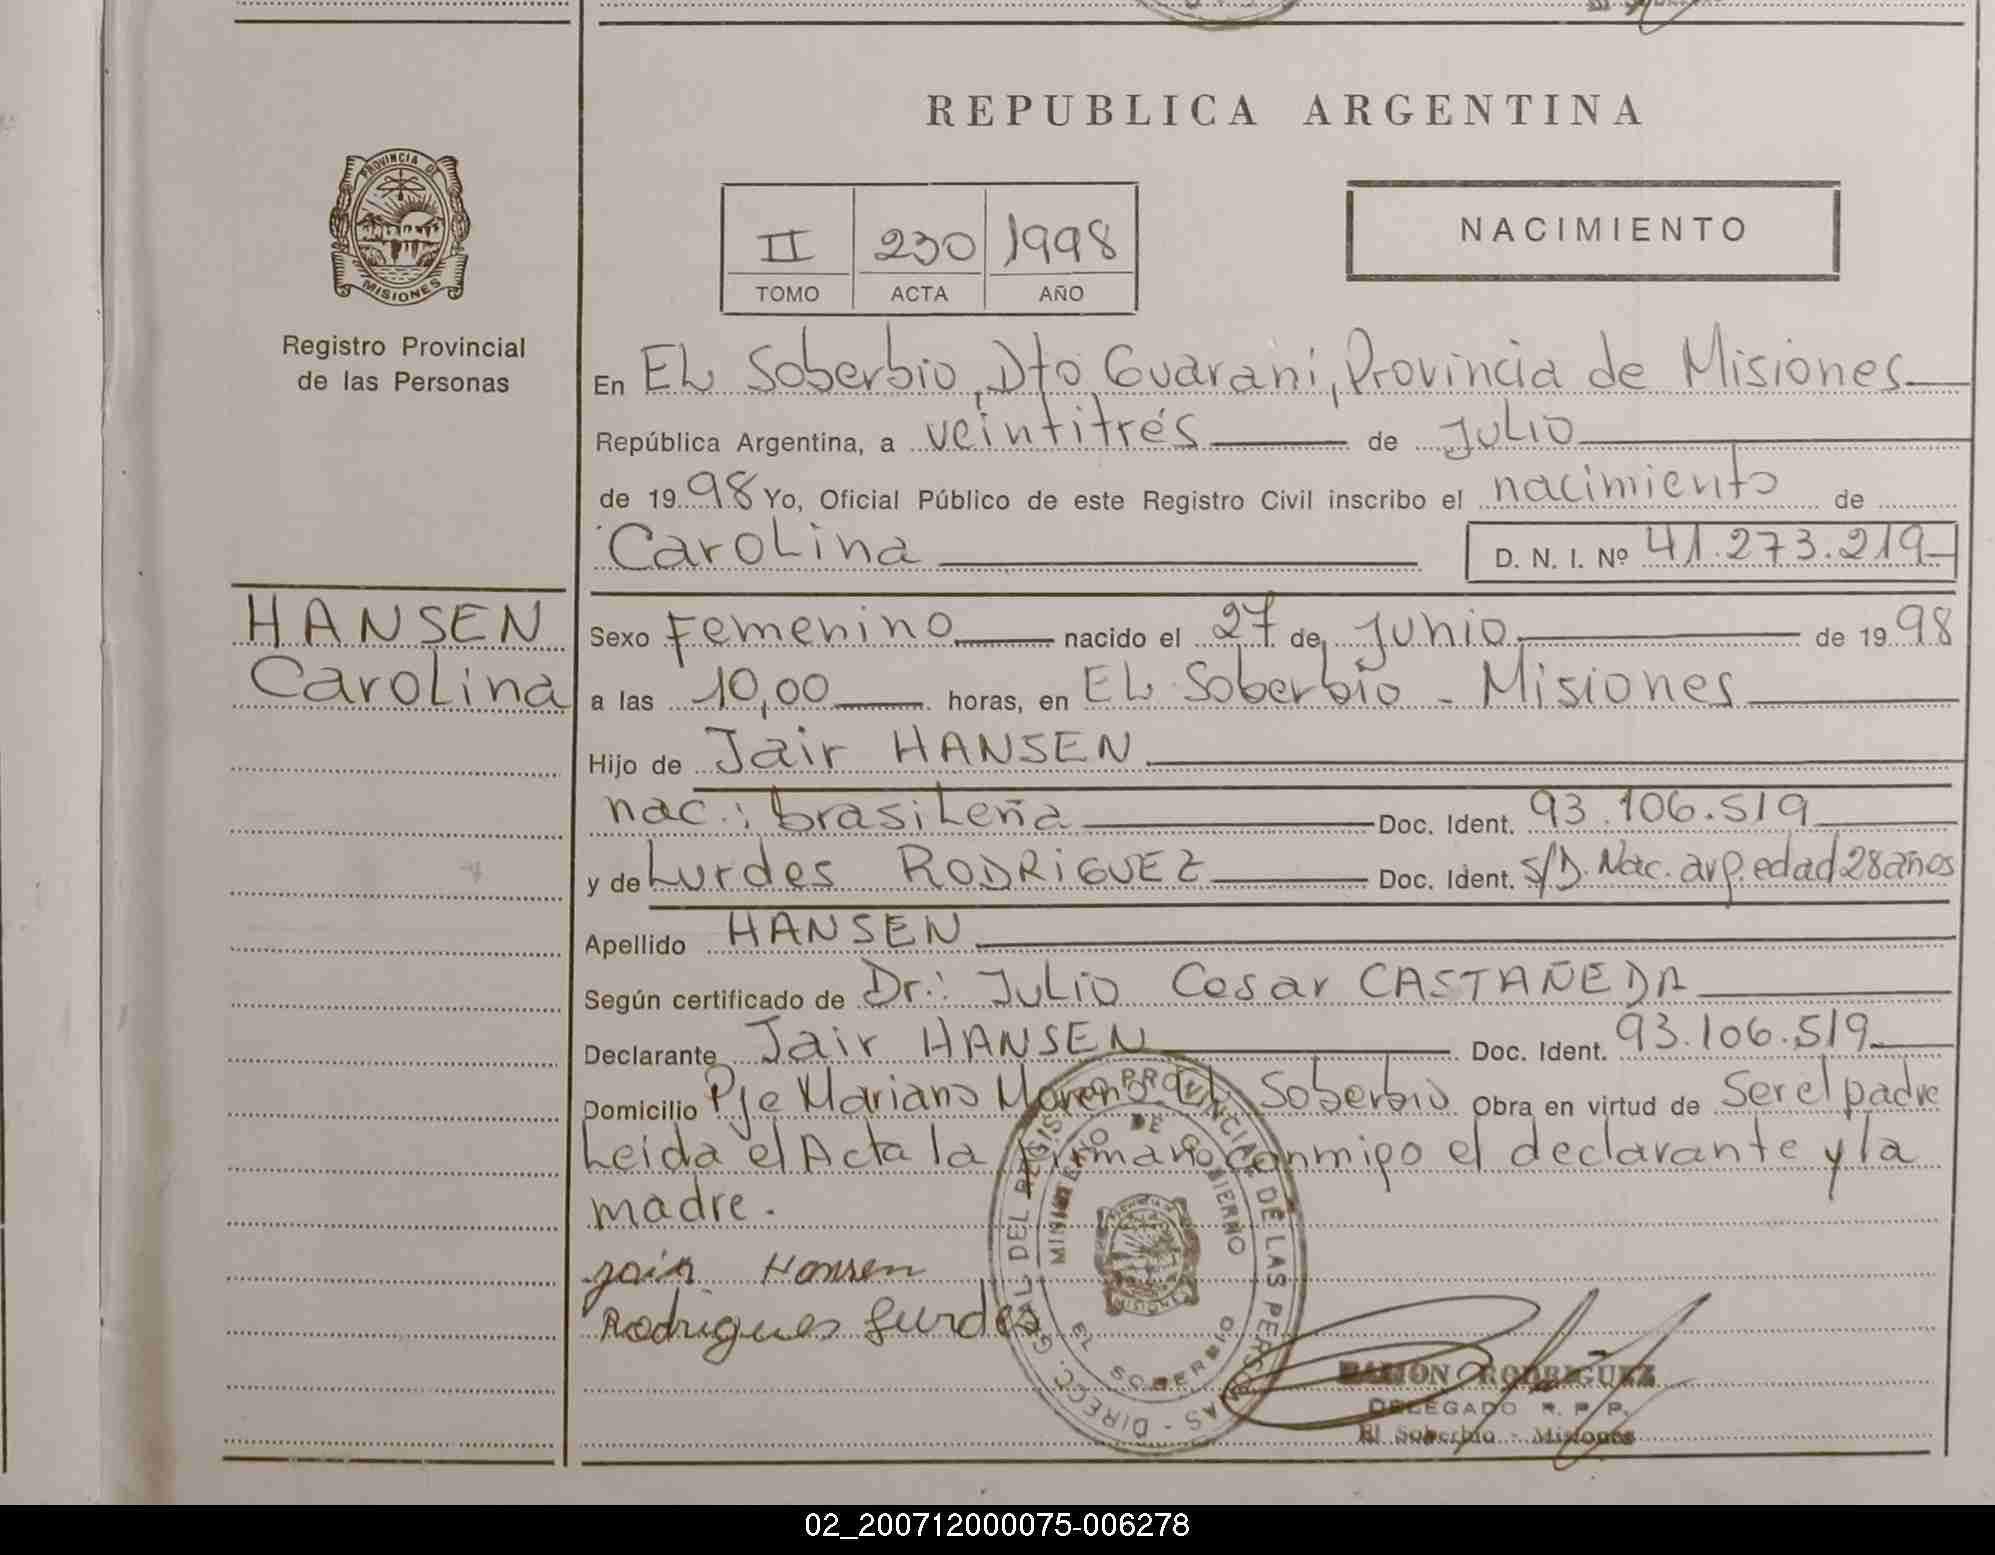 REPUBLICA ARGENTINA
PROVINCIA DE
MISIONES
Registro Provincial
de las Personas
II 230 1998
TOMO ACTA AÑO
NACIMIENTO
En EL Soberbio, Dto Guarani, Provincia de Misiones
República Argentina, a veintitrés de Julio
de 1998 Yo, Oficial Público de este Registro Civil inscribo el nacimiento de
Carolina D. N. I. Nº 41.273.219
HANSEN
Carolina
Sexo Femenino nacido el 27 de Junio de 1998
a las 10,00 horas, en EL Soberbio - Misiones
Hijo de Jair HANSEN
nac.: brasileña Doc. Ident. 93.106.519
y de Lurdes RODRIGUEZ Doc. Ident. S/D. Nac. arg. edad 28 años
Apellido HANSEN
Según certificado de Dr.: Julio Cesar CASTAÑEDA
Declarante Jair HANSEN Doc. Ident. 93.106.519
Domicilio Pje Mariano Moreno EL Soberbio Obra en virtud de Ser el padre
Leida el Acta la firmano conmigo el declarante y la
madre.
Jair Hansen
Rodrigues Lurdes
DIRECC. GRAL DEL REGISTRO PROVINCIAL DE LAS PERSONAS -
MINISTERIO DE GOBIERNO
MISIONES
EL SOBERBIO
RAMON RODRIGUEZ
DELEGADO R. P. P.
El Soberbio - Misiones
02_200712000075-006278